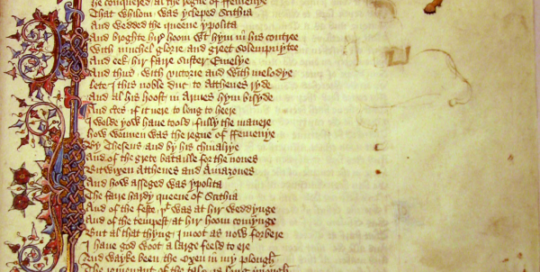 he conquered al the regne of ffemenye
That whilom was ycleped Scithia
And wedded the queene ypolita
And broghte hir hoom wt hym in his contree
With muchel glorie and greet solempnytee
And eek hir faire suster Emelye
And thus with victorie and with melodye
lete I this noble duc to Atthenes ryde
And al his hoost in Armes hym bisyde
And certes if it nere to long to heere
I wolde yow haue toold fully the manere
how wonnen was the regne of ffemenye
By Theseus and by his chiualrye
And of the grete bataille for the nones
Bitwixen Atthenes and Amazones
And how asseged was ypolita
The faire hardy queene of Scithia
And of the feste þt was at hir weddynge
And of the tempest at hir hoom comynge
But al that thyng I moot as now forbere
I haue god woot a large feeld to ere
And wayke been the Oxen in my plough
The remenant of the tale is long ynough